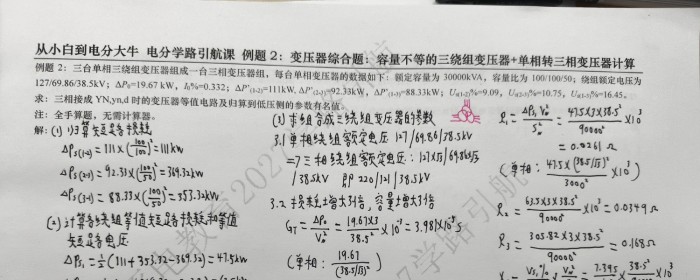 从小白到电分大牛 电分学路引航课 例题 2：变压器综合题：容量不等的三绕组变压器+单相转三相变压器计算
例题 2：三台单相三绕组变压器组成一台三相变压器组，每台单相变压器的数据如下：额定容量为 30000kVA，容量比为 100/100/50；绕组额定电压为
127/69.86/38.5kV；ΔP₀=19.67 kW，I₀%=0.332；ΔP'₍₁₋₂₎=111kW，ΔP'₍₂₋₃₎=92.33kW，ΔP'₍₁₋₃₎=88.33kW；U_k(1-2)%=9.09，U_k(2-3)%=10.75，U_k(3-1)%=16.45。
求：三相接成 YN,yn,d 时的变压器等值电路及归算到低压侧的参数有名值。
注：全手算题，无需计算器。
解：(1) 归算短路损耗
ΔPs(1-2) = 111 × (100/100)² = 111kW
ΔPs(2-3) = 92.33 × (100/50)² = 369.32kW
ΔPs(3-1) = 88.33 × (100/50)² = 353.32kW
(2) 计算各绕组等值短路损耗和等值
短路电压
ΔPs₁ = ½(111 + 353.32 - 369.32) = 47.5kW
(3) 求组合成三绕组变压器的参数
3.1 单相绕组额定电压 127/69.86/38.5kV
⇒ 三相绕组额定电压：127×√3/69.86×√3
/38.5kV 即 220/121/38.5kV
3.2 损耗增大3倍，容量增大3倍
G_T = ΔP₀/V_N² = 19.67×3/38.5² × 10⁻³ = 3.981×10⁻⁵ S
(单相： 19.67/(38.5/√3)²
R₁ = ΔPs₁V_N²/S_N² = 47.5×3×38.5²/90000² × 10³
= 0.0261 Ω
(单相： 47.5×(38.5/√3)²/30000² × 10³)
R₂ = 63.5×3×38.5²/90000² × 10³ = 0.0349 Ω
R₃ = 305.82×3×38.5²/90000² × 10³ = 0.168 Ω